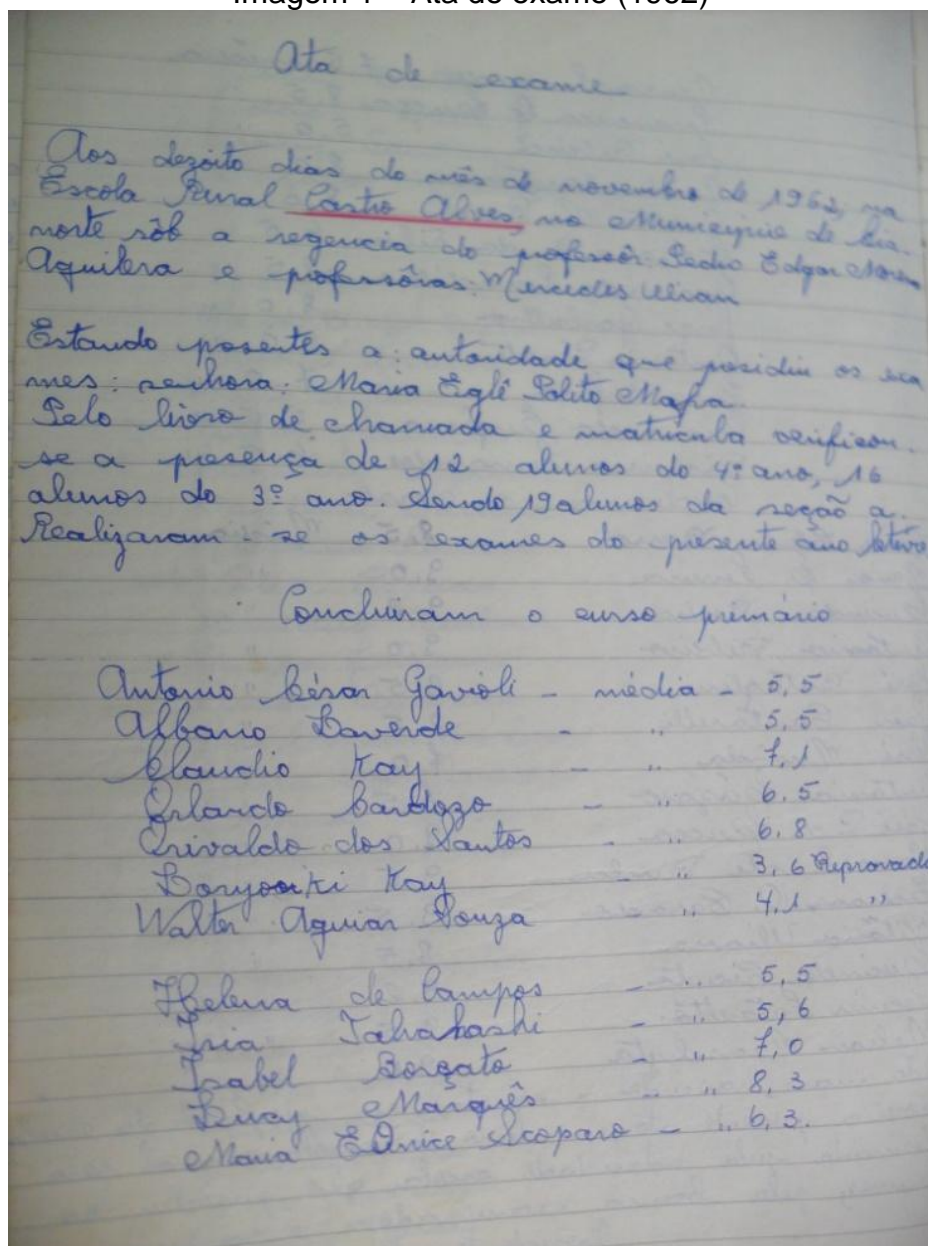 Imagem 1 – Ata de exame (1962)
Ata de exame
Aos dezoito dias do mês de novembro de 1962, na
Escola Rural Castro Alves, no Municipio de Cia.
norte sôb a regencia do professôr: Pedro Edgar
Aquilera e professôras: Mercedes
Estando presentes a: autoridade que presidiu os exa
mes: senhora: Maria Eglê Polito Mafra.
Pelo livro de chamada e matricula verificou-
se a presença de 12 alunos do 4º ano, 16
alunos do 3º ano. Sendo 19 alunos da seção a.
Realizaram-se os exames do presente ano letivo
Concluiram o curso primário
Antonio César Gavioli - média - 5,5
Albano Laverde - " 5,5
Claudio Kay - " 7,1
Orlando Cardozo - " 6,5
Orivaldo dos Santos - " 6,8
Kay - " 3,6 Reprovado
Walter Aguiar Souza " 4,1 "
Helena de Campos - " 5,5
Iria Takahashi - " 5,6
Isabel Borgato - " 7,0
Lucy Marquês - " 8,3
Maria Eunice Scoparo - " 6,3.